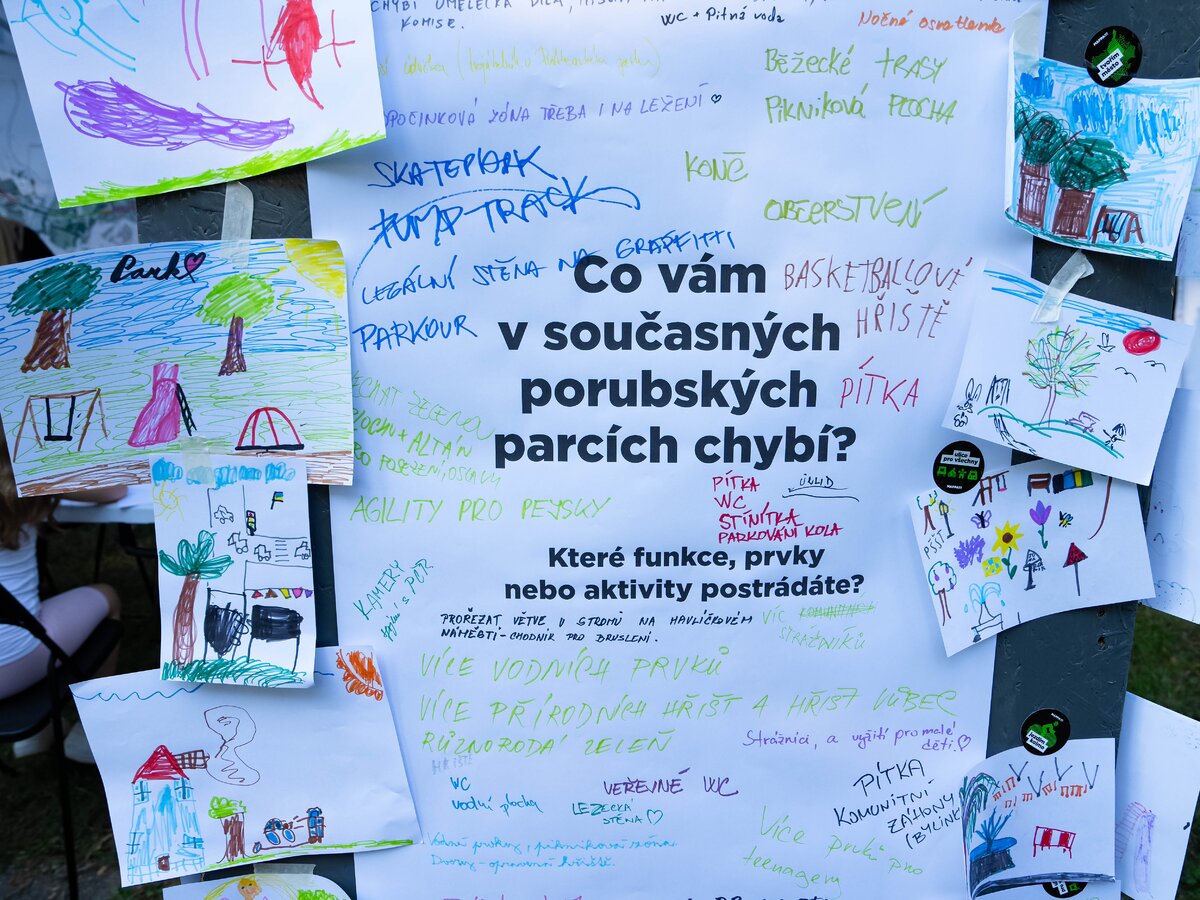 CHYBÍ UMĚLECKÁ DÍLA,
KOMISE.
WC + Pitná voda
Noční osvětlení
BĚŽECKÉ TRASY
PIKNIKOVÁ PLOCHA
ZÓNA TŘEBA I NA LEŽENÍ ♡
SKATEPARK
PUMPTRACK
KONĚ
OBČERSTVENÍ
LEGÁLNÍ STĚNA NA GRAFFITTI
PARKOUR
Park
Co vám
v současných
porubských
parcích chybí?
BASKETBALLOVÉ
HŘIŠTĚ
PÍTKA
ZELENOU
PLOCHU + ALTÁN
PRO POSEZENÍ, OSLAVY
AGILITY PRO PEJSKY
PÍTKA
WC
STÍNÍTKA
PARKOVÁNÍ KOLA
ÚKLID
Které funkce, prvky
nebo aktivity postrádáte?
KAMERY
PROŘEZAT VĚTVE U STROMŮ NA HAVLÍČKOVĚM
NÁMĚSTÍ - CHODNÍK PRO BRUSLENÍ.
VÍC
STRÁŽNÍKŮ
VÍCE VODNÍCH PRVKŮ
VÍCE PŘÍRODNÍCH HŘIŠŤ A HŘIŠŤ VŮBEC
RŮZNORODÁ ZELEŇ
Strážníci, a vyžití pro malé
děti. ♡
HŘIŠTĚ
WC
vodní plocha
VEŘEJNÉ WC
LEZECKÁ
STĚNA ♡
PÍTKA
KOMUNITNÍ
ZÁHONY
(BYLINK
Vodní prvky, pikniková zóna
Více prvků pro
teenagery
tvoříme
město
ulice
pro všechny